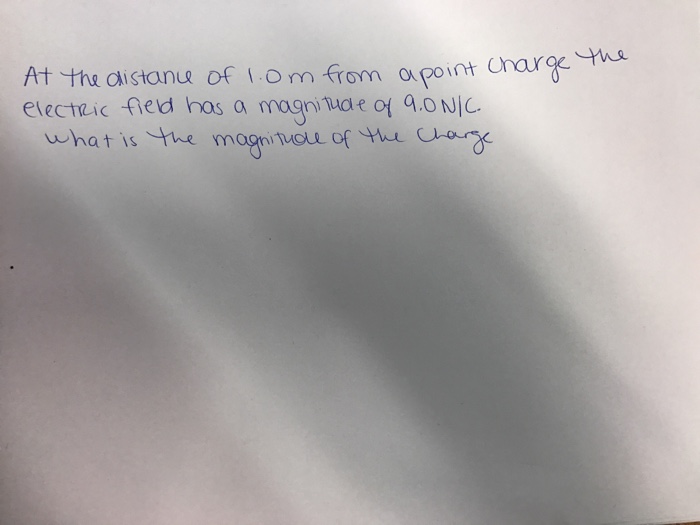 At the distance of 1.0 m from a point charge the
electric field has a magnitude of 9.0 N/C.
What is the magnitude of the charge